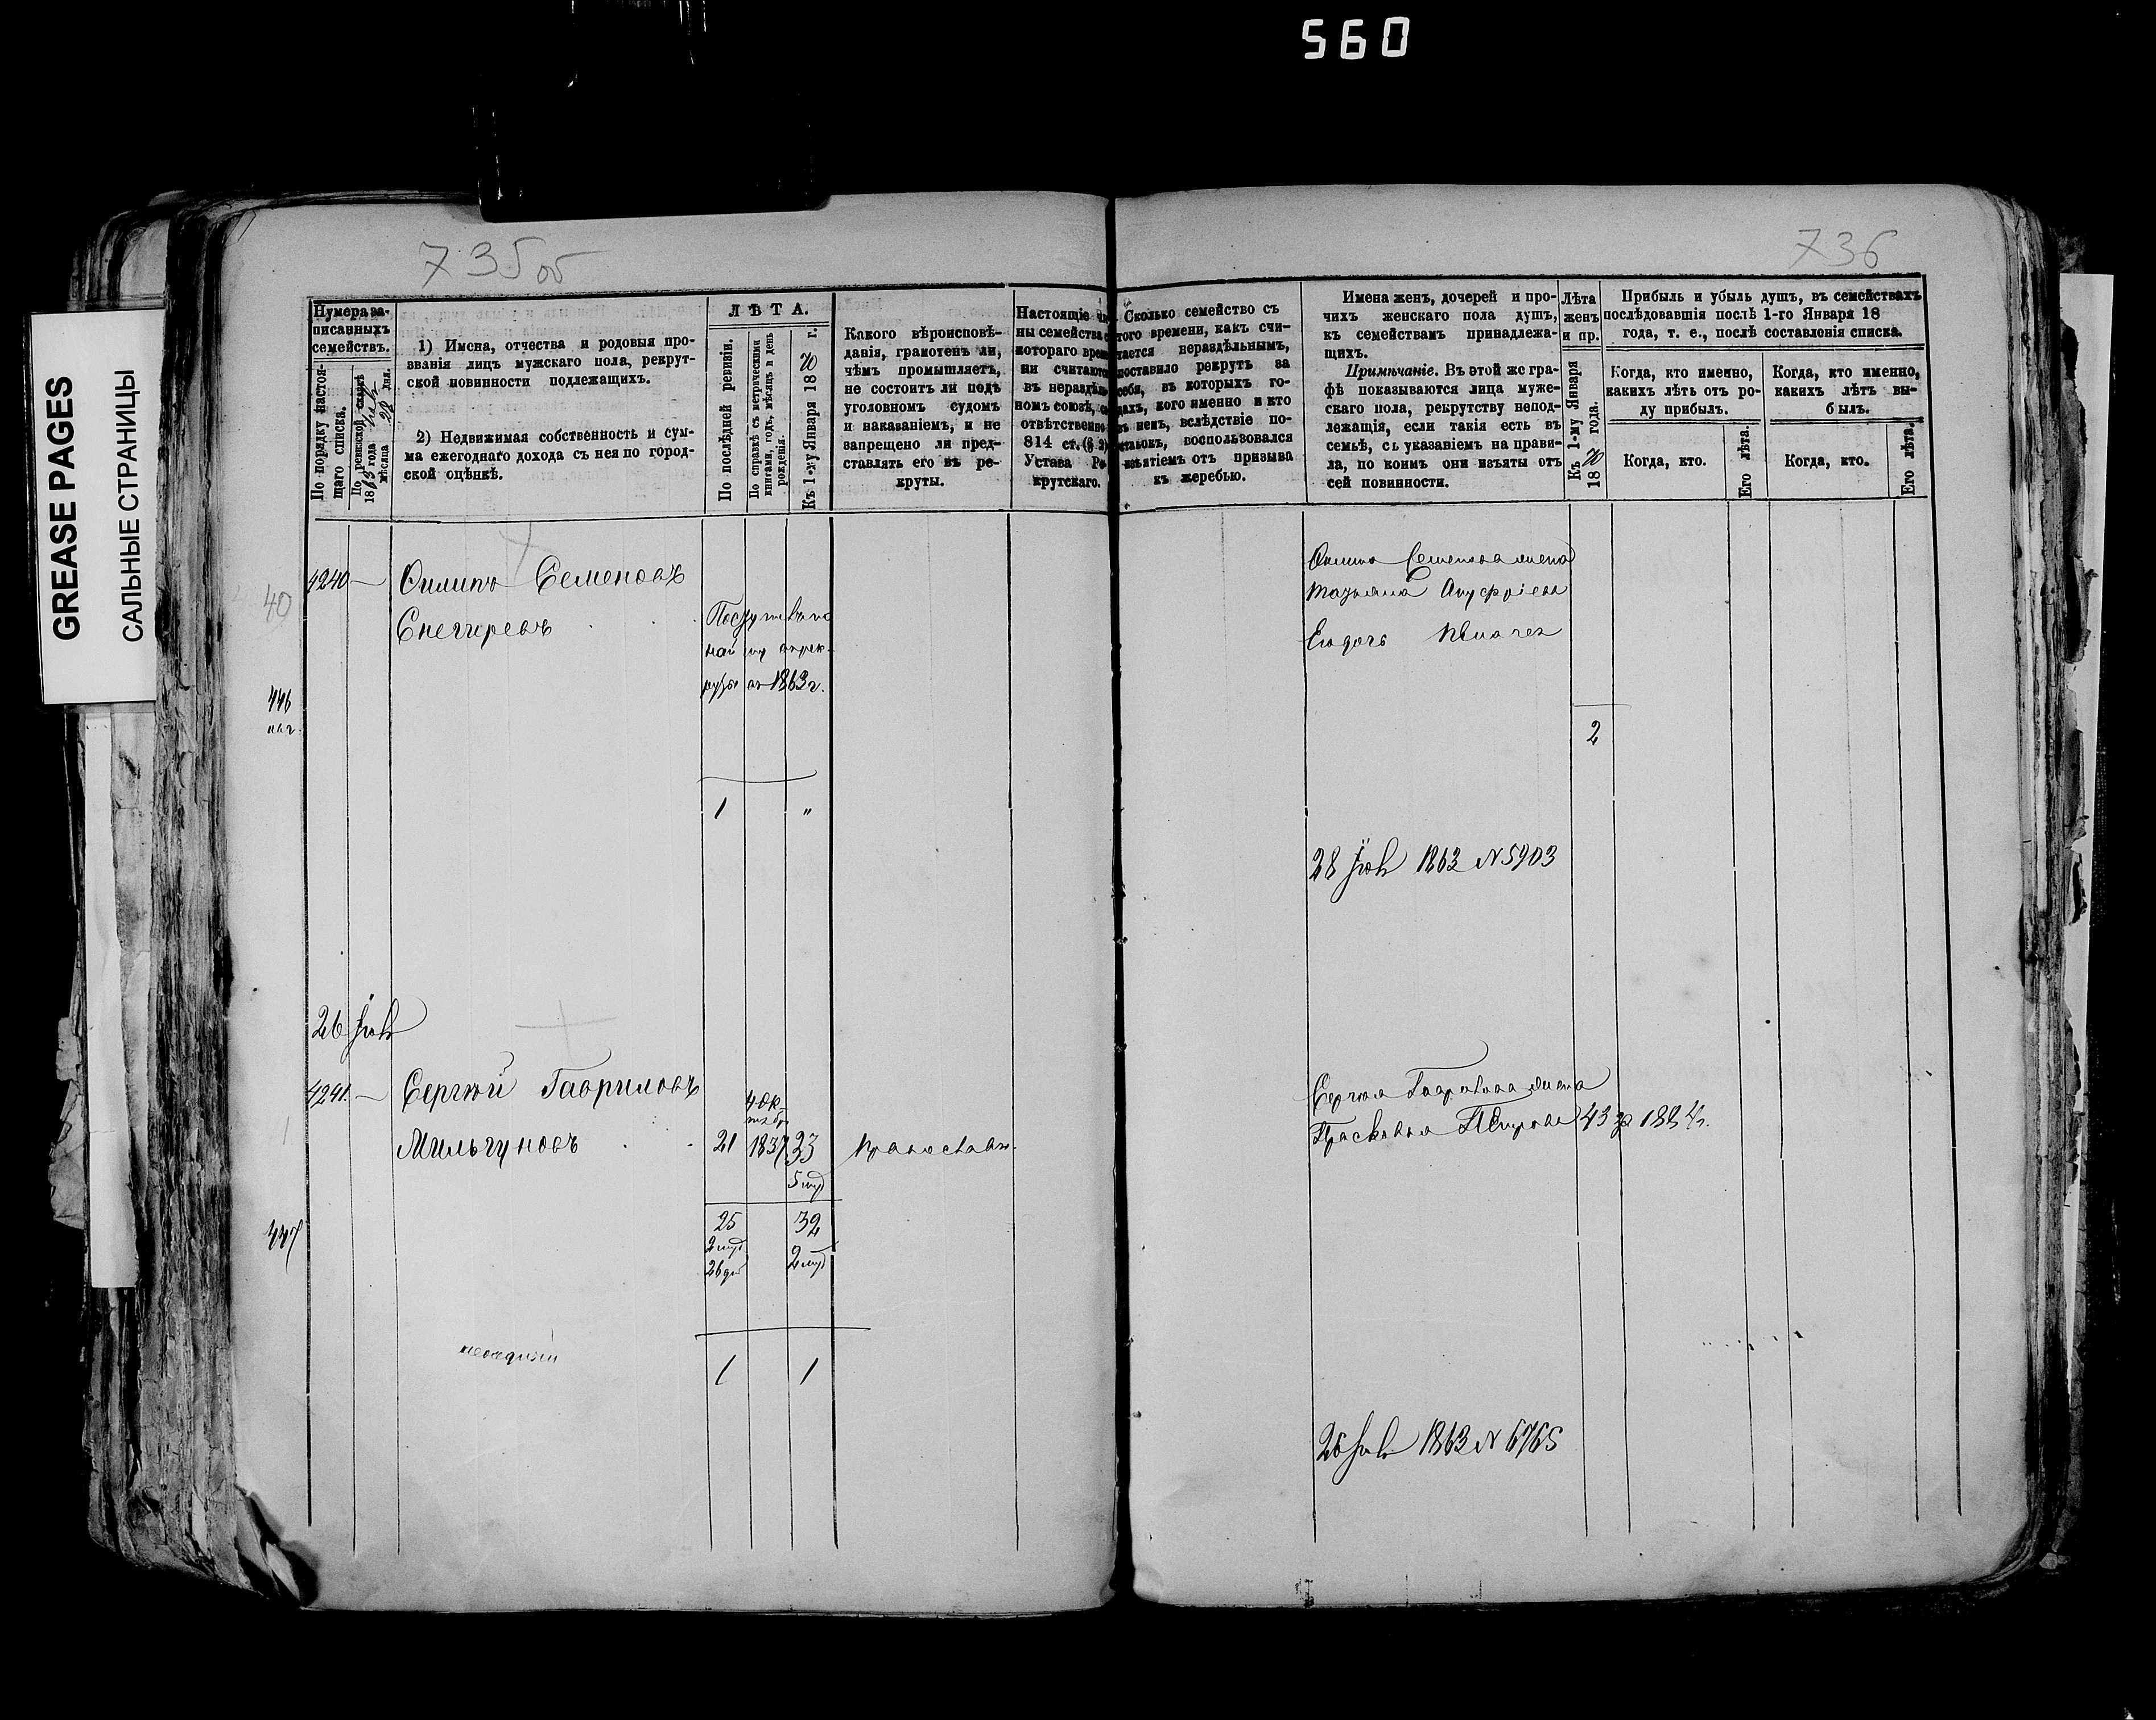 560
GREASE PAGES
САЛЬНЫЕ СТРАНИЦЫ
735об
736
Нумера за-
писанныхъ
семействъ.
По порядку настоя-
щаго списка.
По ревизской сказкѣ
1863 года
мѣсяца 28 дня.
1) Имена, отчества и родовыя про-
званія лицъ мужскаго пола, рекрут-
ской повинности подлежащихъ.
2) Недвижимая собственность и сум-
ма ежегоднаго дохода съ нея по город-
ской оцѣнкѣ.
ЛѢТА.
По послѣдней ревизіи.
По справкѣ съ метрическими
книгами, годъ, мѣсяцъ и день
рожденія.
Къ 1-му Января 1870 г.
Какого вѣроисповѣ-
данія, грамотенъ ли,
чѣмъ промышляетъ,
не состоитъ ли подъ
уголовномъ судомъ
и наказаніемъ, и не
запрещено ли пред-
ставлять его въ ре-
круты.
Настоящіе
ны семейства
котораго
ни считаютъ
въ нераздѣль-
номъ союзѣ,
отвѣтственно
814 ст. (§ 2)
Устава Ре-
крутскаго.
Сколько семейство съ
того времени, какъ счи-
тается нераздѣльнымъ,
поставило рекрутъ за
себя, въ которыхъ го-
дахъ, кого именно и кто
въ немъ, вслѣдствіе по-
воспользовался
изъятіемъ отъ призыва
къ жеребью.
Имена женъ, дочерей и про-
чихъ женскаго пола душъ,
къ семействамъ принадлежа-
щихъ.
Примѣчаніе. Въ этой же гра-
фѣ показываются лица муже-
скаго пола, рекрутству непод-
лежащія, если такія есть въ
семьѣ, съ указаніемъ на прави-
ла, по коимъ они изъяты отъ
сей повинности.
Лѣта
женъ
и пр.
Къ 1-му Января
1870 года.
Прибыль и убыль душъ, въ семействахъ
послѣдовавшія послѣ 1-го Января 18
года, т. е., послѣ составленія списка.
Когда, кто именно,
какихъ лѣтъ отъ ро-
ду прибылъ.
Когда, кто именно,
какихъ лѣтъ вы-
былъ.
Когда, кто.
Его лѣта.
Когда, кто.
Его лѣта.
40
4240 — Филипъ Семеновъ
Снегиревъ
въ 1863 г.
446
1 "
Филипа Семенова жена
Татьяна Ануфріева
Его дочь
2
28 1863 N 5903
26
4241 — Сергѣй Гавриловъ
Мильгуновъ
4 Ок-
тября
21 1837 33 православн.
5 мд
25 32
2 мд 2 мд
26 дн
447
1 1
Сергѣя Гаврилова жена
Прасковья Петрова 43
26 1863 N 6765